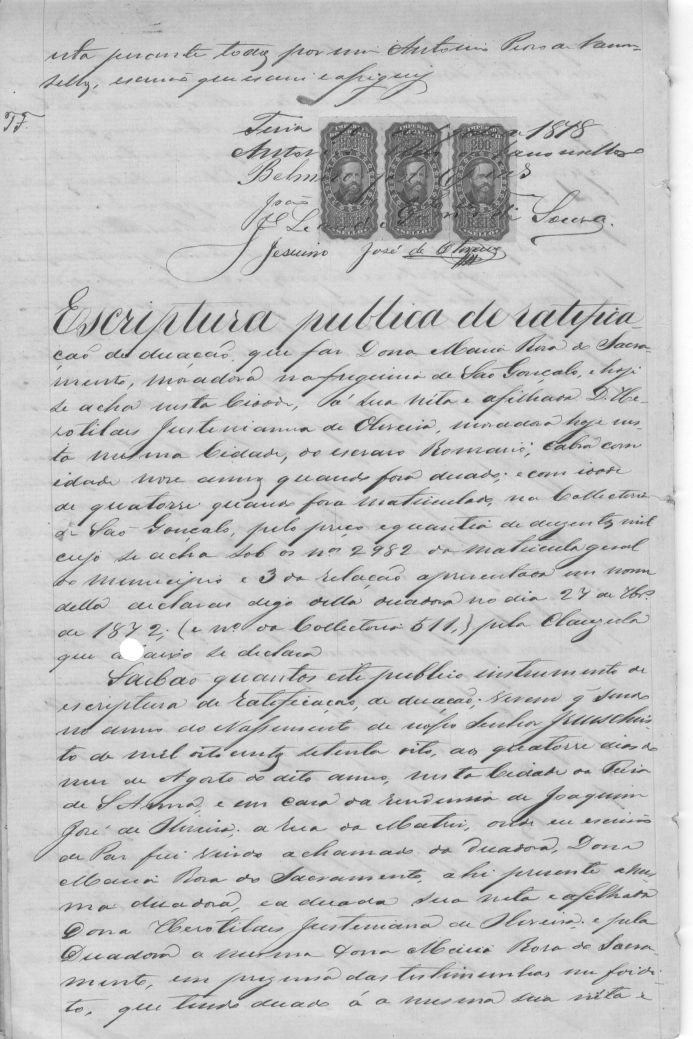 esta perante todas por mim Antonio Pires de Vascon-
sellos, escrivão que escrevi e assignei
TF.
Feira 1878
Antonio Vasconsellos
IMPERIO IMPERIO IMPERIO
200 200 200
João
de Souza.
Jesuino José de Oliveira
Escriptura publica de ratifica-
ção de duação, que faz Dona Maria Rosa do Sacra-
mento, moradora na freguesia de São Gonçalo, e hoje
se acha nesta Cidade, á sua neta e afilhada D. He-
rotildes Justeniana de Oliveira, moradora hoje nes-
ta mesma Cidade, do escravo Romario, cabra com
idade nove annos quando fora duado; e com idade
de quatorze quando fora matriculado, na Collectoria
de São Gonçalo, pelo preço e quantia de duzentos mil
cujo se acha sob os nos 2982 da matricula geral
do municipio e 3 da relação apresentada em nome
della declaras digo della duadora no dia 27 de
de 1872; (e no. da Collectoria 511,) pela Clauzula
que abaixo se declara
Saibão quantos este publico instrumento de
escriptura de ratificação, de duação, virem q' sendo
no anno do Nassimento de nosso Senhor Jesus Chris-
to de mil oito centos setenta oito, aos quatorze dias do
mez de Agosto do dito anno, nesta Cidade da Feira
de S. Anna, e em casa da rezidensia de Joaquim
José de Oliveira, a rua da Matriz, onde eu escrivão
de Paz fui vindo a chamado da duadora, Dona
Maria Rosa do Sacramento, ahi prezente a mes-
ma duadora, e a duada sua neta e afilhada
Dona Herotildes Justeniana de Oliveira. e pela
Duadora a mesma Dona Maria Rosa do Sacra-
mento, em prezensa das testimunhas me foi di-
to, que tendo duado á a mesma sua neta e